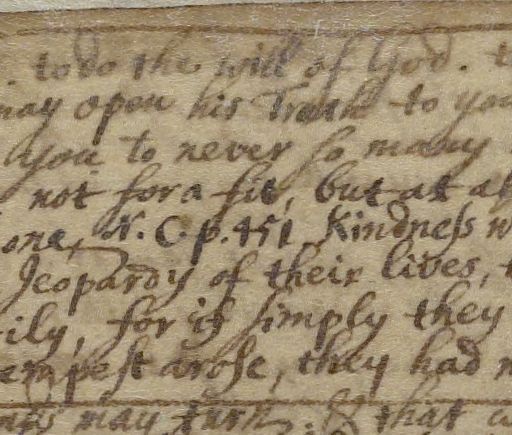 . to do the will of God. t
may open his Truth to you
you to never so many
not for a fit, but at al
one, N. C. p. 451. Kindness w
Jeopardy of their lives, t
ily, for if simply they
empest arose, they had n
may turn. & that